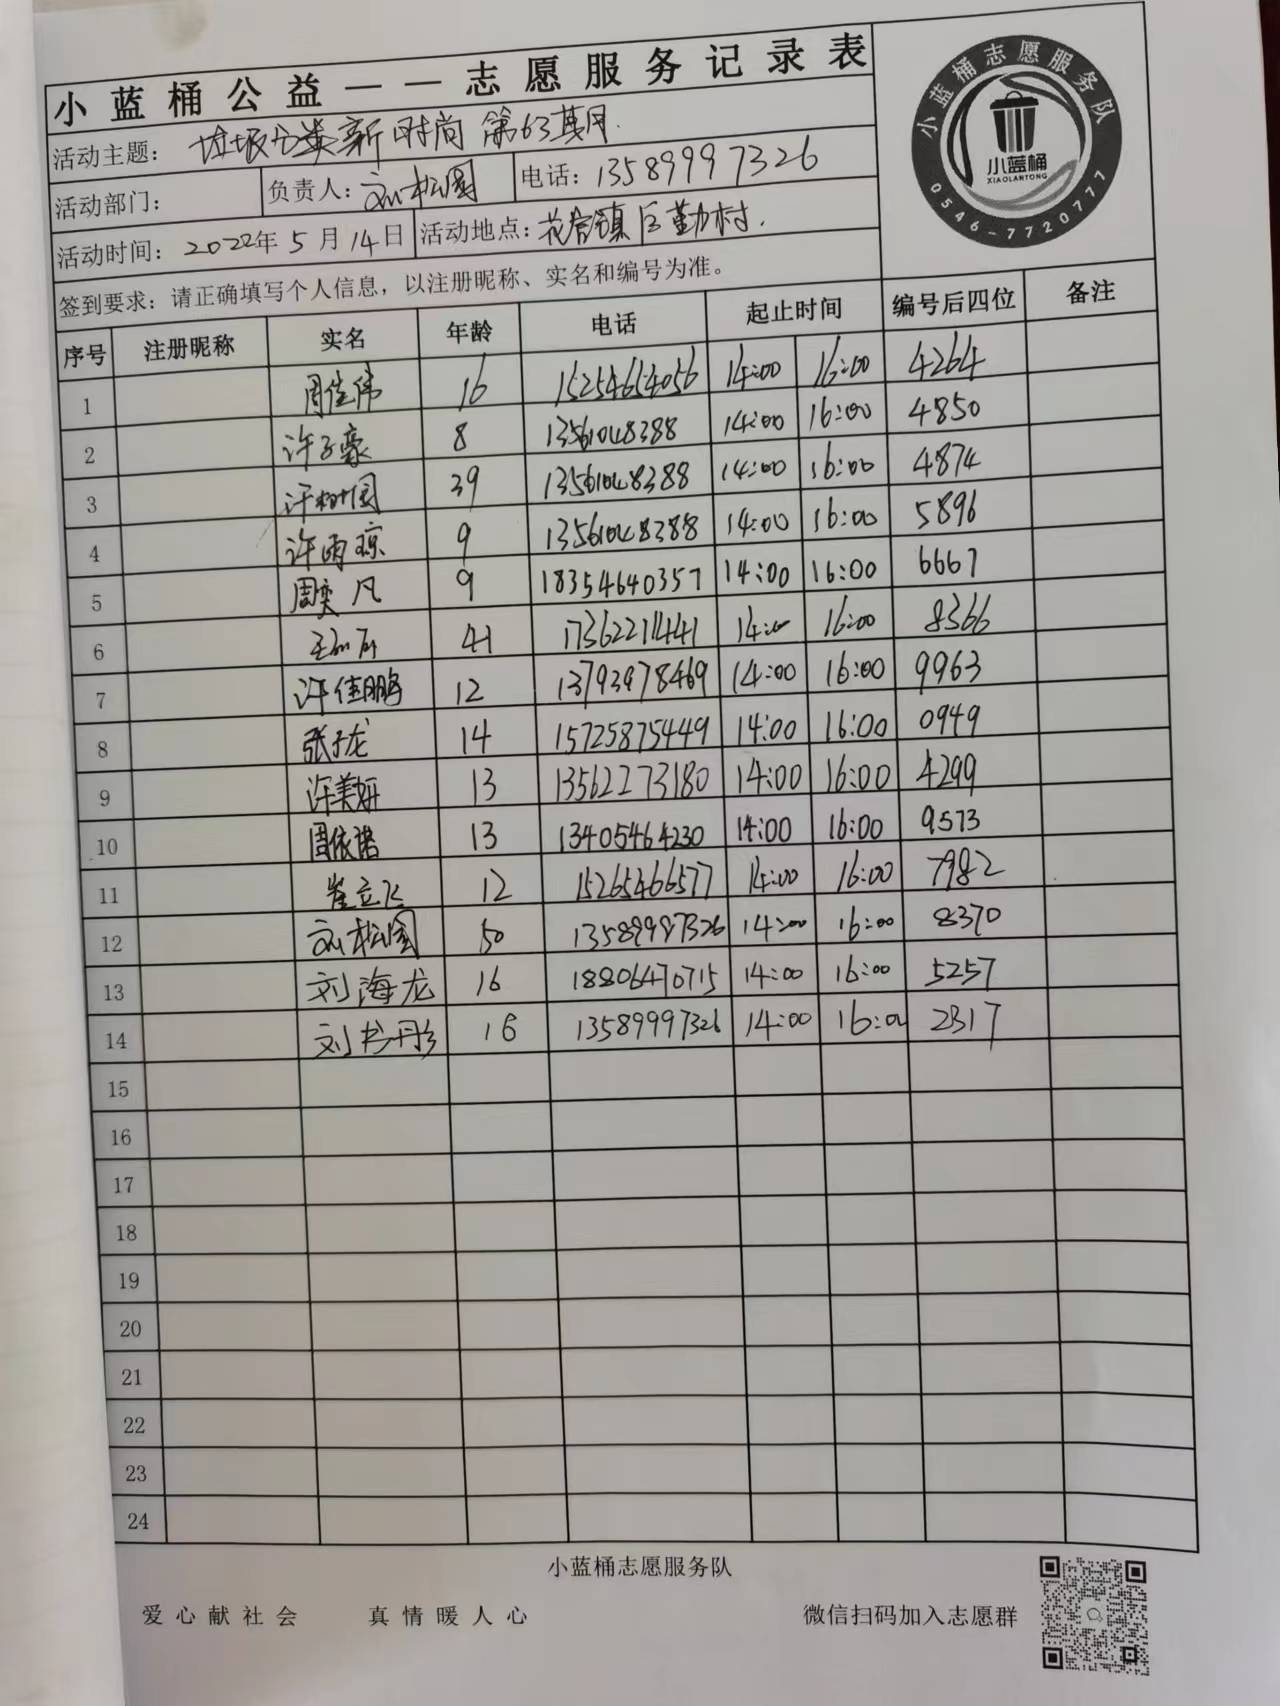 小蓝桶公益——志愿服务记录表
小蓝桶志愿服务队
小蓝桶
XIAOLANTONG
0546-7720777
活动主题: 垃圾分类新时尚 第63期.
活动部门: 负责人: 刘松园 电话: 13589997326
活动时间: 2022年5月14日 活动地点: 花官镇 勤村.
签到要求: 请正确填写个人信息，以注册昵称、实名和编号为准。
序号 注册昵称 实名 年龄 电话 起止时间 编号后四位 备注
1 周佳伟 16 15254654056 14:00 16:00 4264
2 许子豪 8 13561048388 14:00 16:00 4850
3 许树国 39 13561048388 14:00 16:00 4874
4 许雨琼 9 13561048388 14:00 16:00 5896
5 周奕凡 9 18354640357 14:00 16:00 6667
6 41 17362211441 14:00 16:00 8366
7 许佳鹏 12 13793978469 14:00 16:00 9963
8 张子龙 14 15725875449 14:00 16:00 0949
9 许美妍 13 13562273180 14:00 16:00 4299
10 周依诺 13 13405464230 14:00 16:00 9573
11 崔立飞 12 15265466577 14:00 16:00 7982
12 刘松园 50 13589997326 14:00 16:00 8370
13 刘海龙 16 18806470715 14:00 16:00 5257
14 刘书彤 16 13589997326 14:00 16:00 2317
15
16
17
18
19
20
21
22
23
24
小蓝桶志愿服务队
爱心献社会 真情暖人心 微信扫码加入志愿群